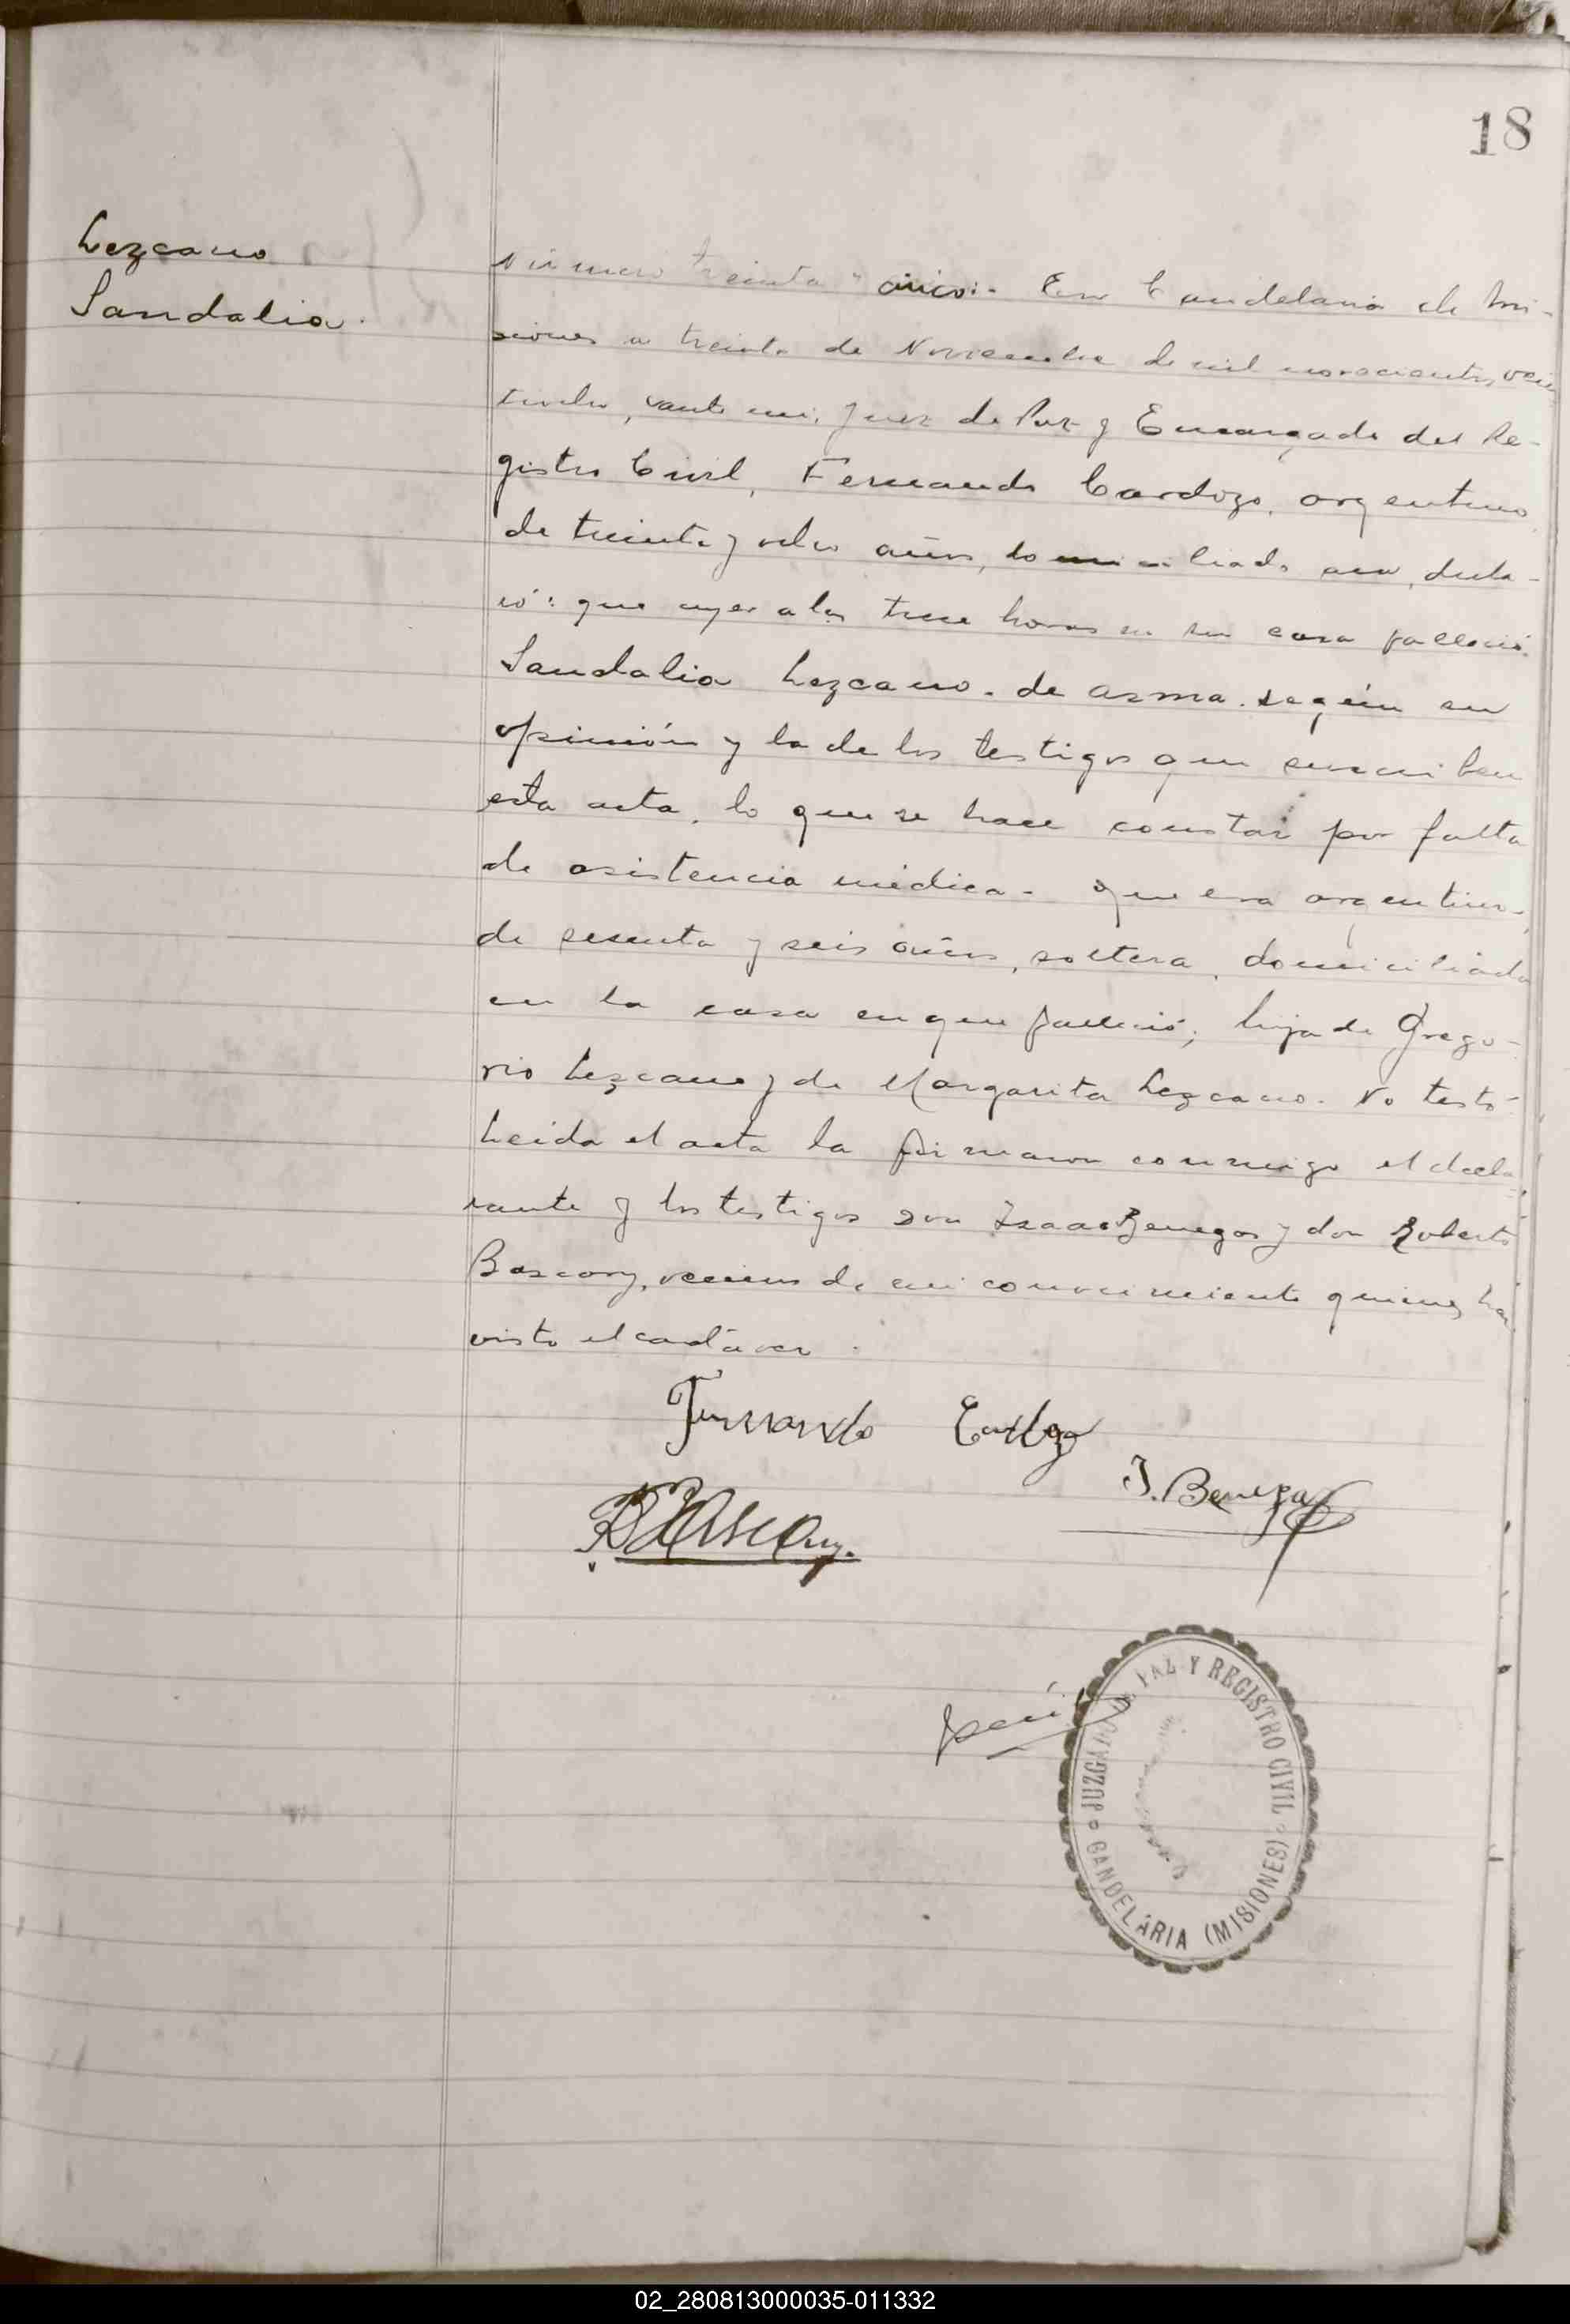 18
Lezcano
Sandalia.
Número treinta y cinco:- En Candelaria de Mi-
siones a treinta de Noviembre de mil novecientos vein
ante mi, Juez de Paz y Encargado del Re-
gistro Civil, Fernando Cardozo, argentino,
de treinta y ocho años, domiciliado acá, decla-
ró: que ayer a las trece horas en su casa falleció
Sandalia Lezcano. de asma. según su
opinión y la de los testigos que suscriben
esta acta, lo que se hace constar por falta
de asistencia médica- que era argentina,
de sesenta y seis años, soltera, domiciliada
en la casa en que falleció; hija de Grego-
rio Lezcano y de Margarita Lezcano. No testó-
Leida el acta la firmaron conmigo el decla-
rante y los testigos don Isaac Benegas y don Roberto
Bascary, vecinos de mi conocimiento quienes han
visto el cadáver.
Fernando Cardozo
J. Benegas
R Bascary.
JUZGADO DE PAZ Y REGISTRO CIVIL
CANDELARIA (MISIONES)
02_280813000035-011332